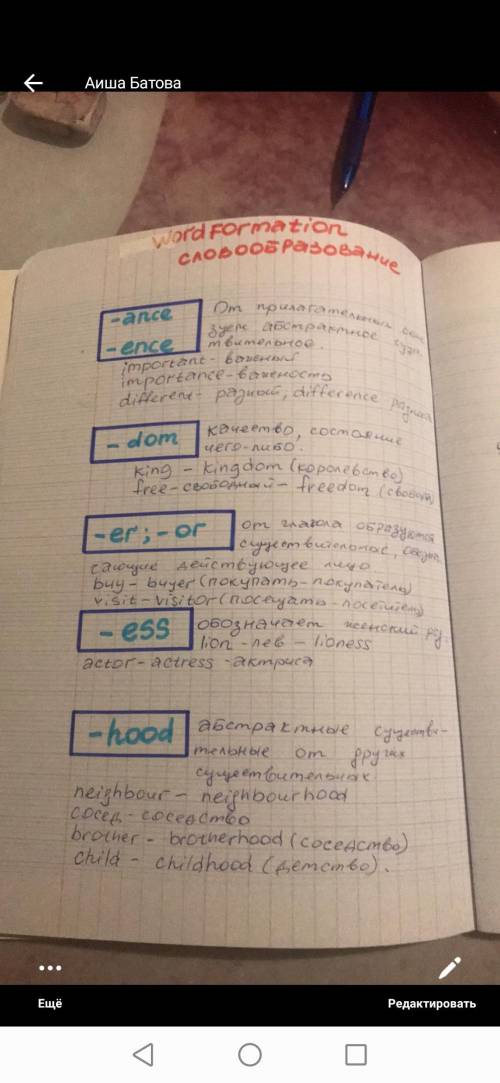 Аиша Батова
Word Formation
словообразование
-ance
-ence
От прилагательных
зуем абстрактное
твительное.
important - важный
importance - важность
different - разный, difference
- dom
качество, состояние
чего-либо.
king - kingdom (королевство)
free - свободный - freedom
-er ; -or
от глагола образуются
существительные,
действующее лицо
buy - buyer (покупать - покупатель)
visit - visitor (посещать - посетитель)
- ess
обозначает женский
lion - лев - lioness
actor - actress - актриса
-hood
абстрактные существи-
тельные от других
существительных
neighbour - neighbourhood
сосед - соседство
brother - brotherhood (соседство)
child - childhood (детство).
Ещё
Редактировать